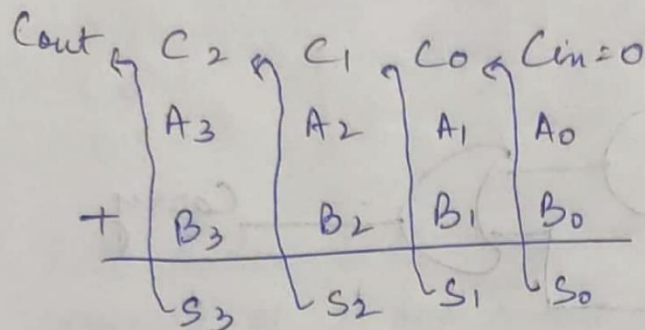 Cout C2 C1 C0 Cin=0
A3 A2 A1 A0
+ B3 B2 B1 B0
S3 S2 S1 S0